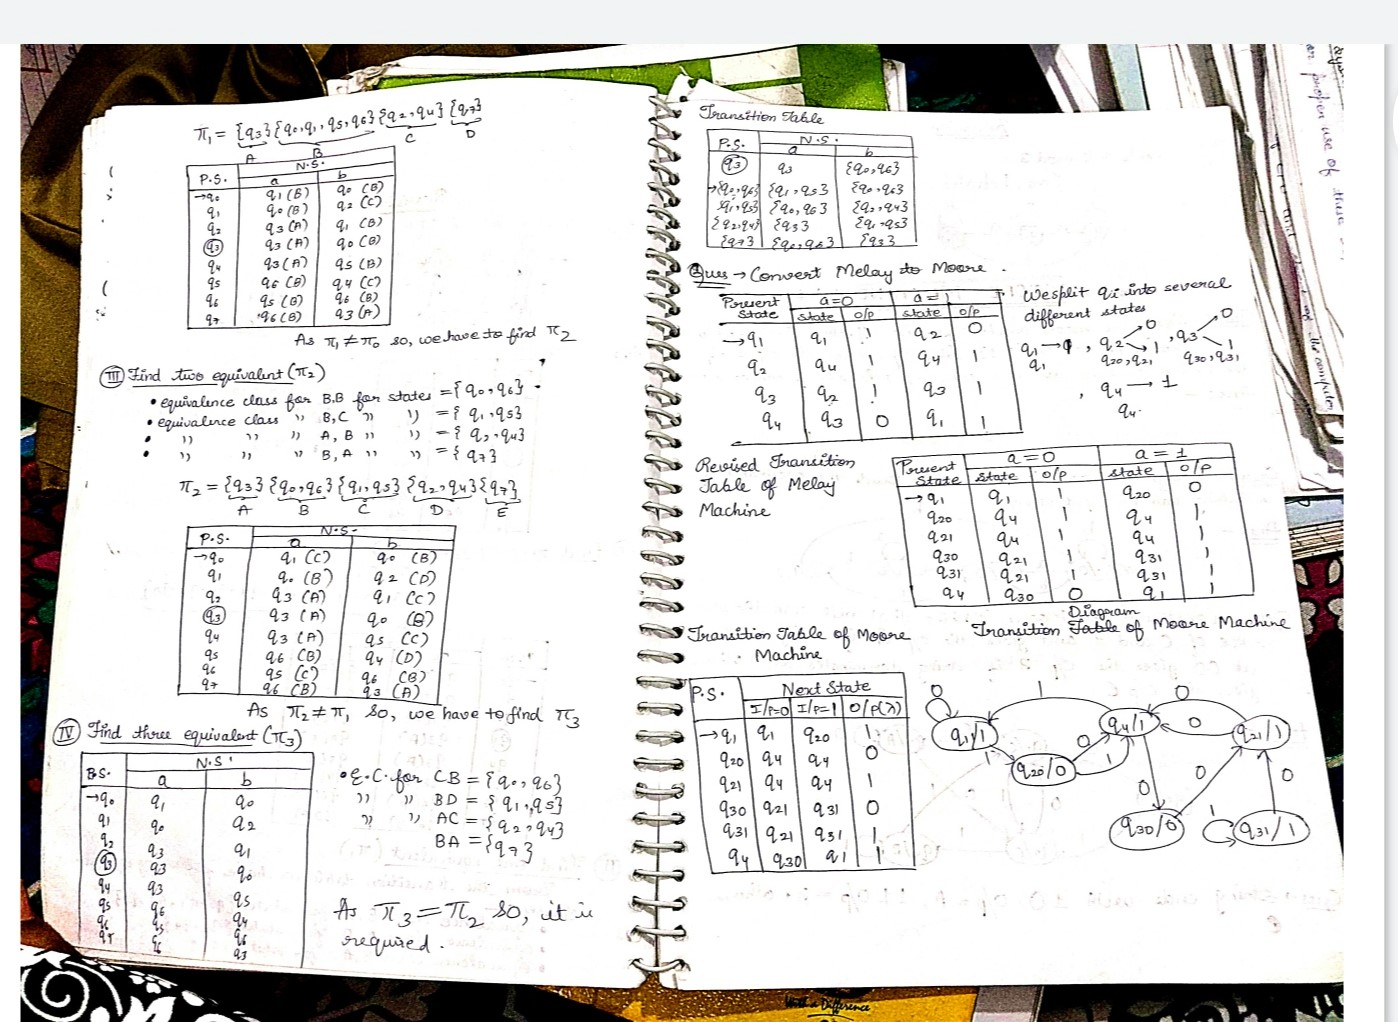 π₁ = {q3}{q0,q1,q5,q6}{q2,q4}{q7}
A B C D
P.S. N.S.
a b
→q0 q1 (B) q0 (B)
q1 q0 (B) q2 (C)
q2 q3 (A) q1 (B)
q3 q3 (A) q0 (B)
q4 q3 (A) q5 (B)
q5 q6 (B) q4 (C)
q6 q5 (B) q6 (B)
q7 q6 (B) q3 (A)
As π₁ ≠ π₀ so, we have to find π₂
III Find two equivalent (π₂)
• equivalence class for B.B for states = {q0, q6}
• equivalence class ,, B,C ,, ,, = {q1, q5}
• ,, ,, ,, A, B ,, ,, = {q2, q4}
• ,, ,, ,, B, A ,, ,, = {q7}
π₂ = {q3} {q0,q6} {q1,q5} {q2,q4} {q7}
A B C D E
P.S. N.S.
a b
→q0 q1 (C) q0 (B)
q1 q0 (B) q2 (D)
q2 q3 (A) q1 (C)
q3 q3 (A) q0 (B)
q4 q3 (A) q5 (C)
q5 q6 (B) q4 (D)
q6 q5 (C) q6 (B)
q7 q6 (B) q3 (A)
As π₂ ≠ π₁ so, we have to find π₃
IV Find three equivalent (π₃)
P.S. N.S.
a b
→q0 q1 q0
q1 q0 q2
q2 q3 q1
q3 q3 q0
q4 q3 q5
q5 q6 q4
q6 q5 q6
q7 q6 q3
• E.C. for CB = {q0, q6}
,, ,, BD = {q1, q5}
,, ,, AC = {q2, q4}
BA = {q7}
As π₃ = π₂ so, it is
required.
Transition Table
P.S. N.S.
a b
q3 q3 {q0,q6}
→{q0,q6} {q1,q5} {q0,q6}
{q1,q5} {q0,q6} {q2,q4}
{q2,q4} {q3} {q1,q5}
{q7} {q0,q6} {q3}
Ques → Convert Melay to Moore.
Present State a=0 a=1
state o/p state o/p
→q1 q1 1 q2 0
q2 q4 1 q4 1
q3 q2 1 q3 1
q4 q3 0 q1 1
We split qi into several
different states
q1 → 1, q2 → 0, 1, q3 → 0, 1
q1 q20, q21 q30, q31
, q4 → 1
q4
Revised Transition
Table of Melay
Machine
Present State a=0 a=1
state o/p state o/p
→q1 q1 1 q20 0
q20 q4 1 q4 1
q21 q4 1 q4 1
q30 q21 1 q31 1
q31 q21 1 q31 1
q4 q30 0 q1 1
Transition Table of Moore
Machine
P.S. Next State
I/P=0 I/P=1 O/P(λ)
→q1 q1 q20 1
q20 q4 q4 0
q21 q4 q4 1
q30 q21 q31 0
q31 q21 q31 1
q4 q30 q1 1
Diagram
Transition Table of Moore Machine
0 1 0
q1/1 q4/1 0 q21/1
1 q20/0 0 1
0 0 0
q30/0 1 q31/1
With a Difference